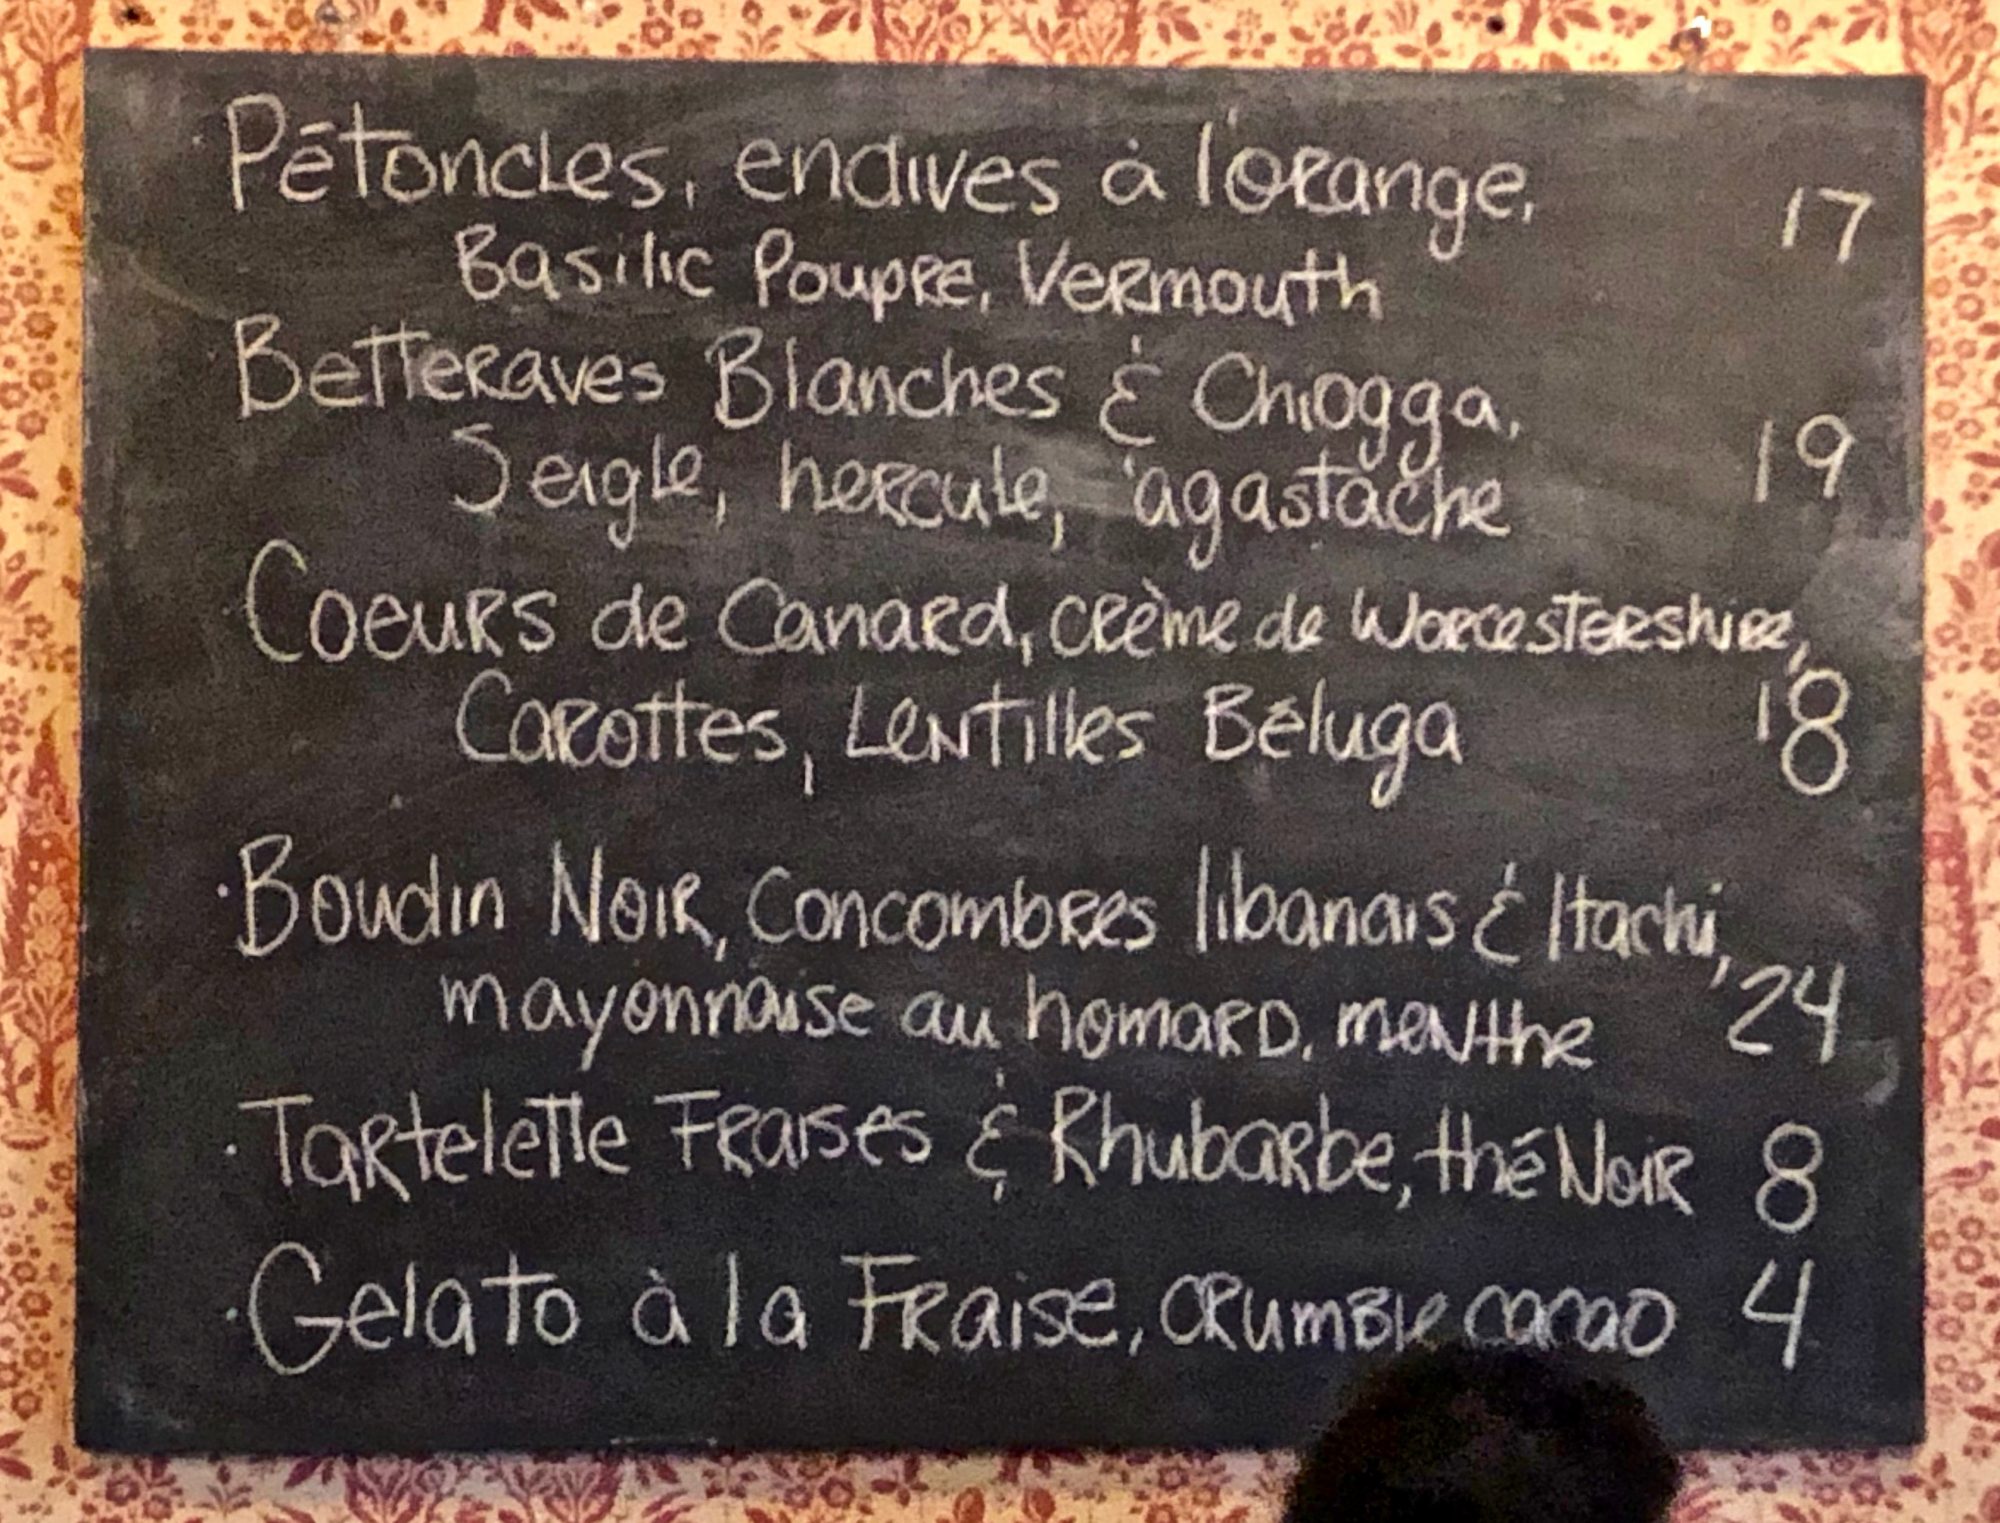 Pétoncles, endives à l'orange, 17
Basilic Poupre, Vermouth
Betteraves Blanches & Chiogga,
Seigle, hercule, agastache 19
Coeurs de Canard, crème de Worcestershire,
Carottes, Lentilles Béluga 18
· Boudin Noir, Concombres libanais & Itachi,
mayonnaise au homard, menthe 24
· Tartelette Fraises & Rhubarbe, thé Noir 8
· Gelato à la Fraise, crumble cacao 4